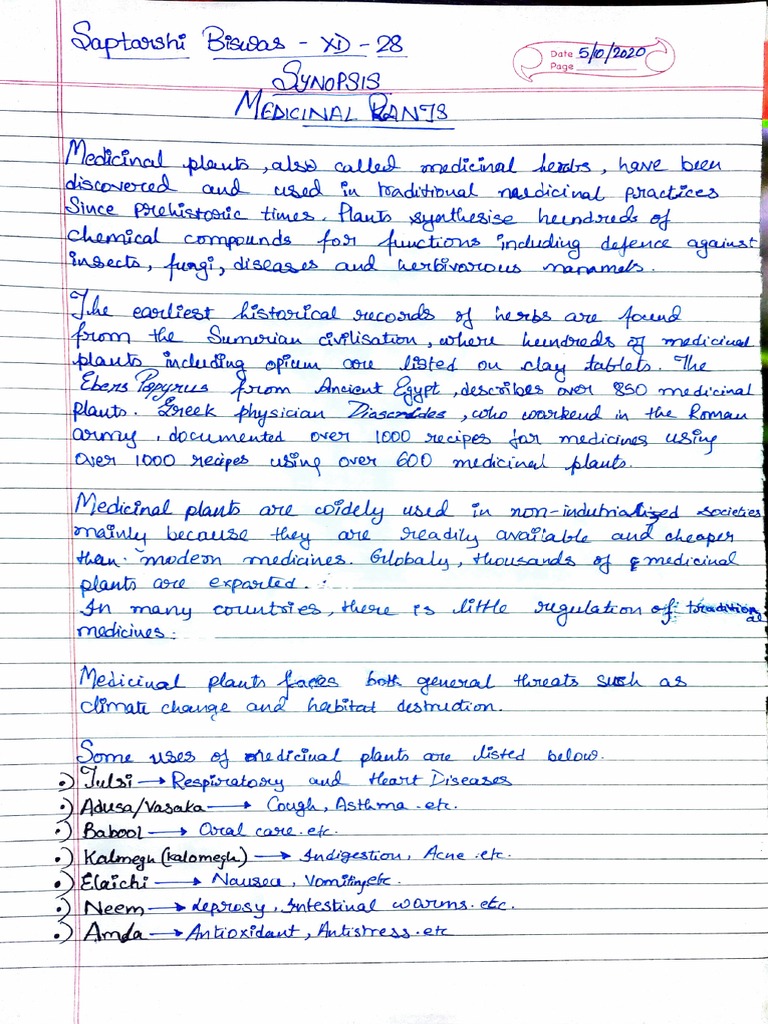 Saptarshi Biswas - XI D - 28
Date 5/10/2020
Page
SYNOPSIS
MEDICINAL PLANTS
Medicinal plants, also called medicinal herbs, have been
discovered and used in traditional medicinal practices
Since prehistoric times. Plants synthesise hundreds of
chemical compounds for functions including defence against
insects, fungi, diseases and herbivorous mammels.
The earliest historical records of herbs are found
from the Sumerian civilisation, where hundreds of medicinal
plants including opium are listed on clay tablets. The
Ebers Papyrus from Ancient Egypt, describes over 850 medicinal
plants. Greek physician Dioscorides, who workend in the Roman
army, documented over 1000 recipes for medicines using
over 1000 recipes using over 600 medicinal plants.
Medicinal plants are widely used in non-industrialized societies
mainly because they are readily available and cheaper
than modern medicines. Globaly, thousands of medicinal
plants are exported.
In many countries, there is little regulation of traditional
medicines.
Medicinal plants faces both general threats such as
climate change and habitat destruction.
Some uses of medicinal plants are listed below.
•) Tulsi → Respiratory and Heart Diseases
•) Adusa/Vasaka → Cough, Asthma etc.
•) Babool → Oral care etc.
•) Kalmegh (kalomegh) → Indigestion, Acne etc.
•) Elaichi → Nausea, Vomiting etc.
•) Neem → Leprosy, Intestinal worms etc.
•) Amla → Antioxidant, Antistress etc